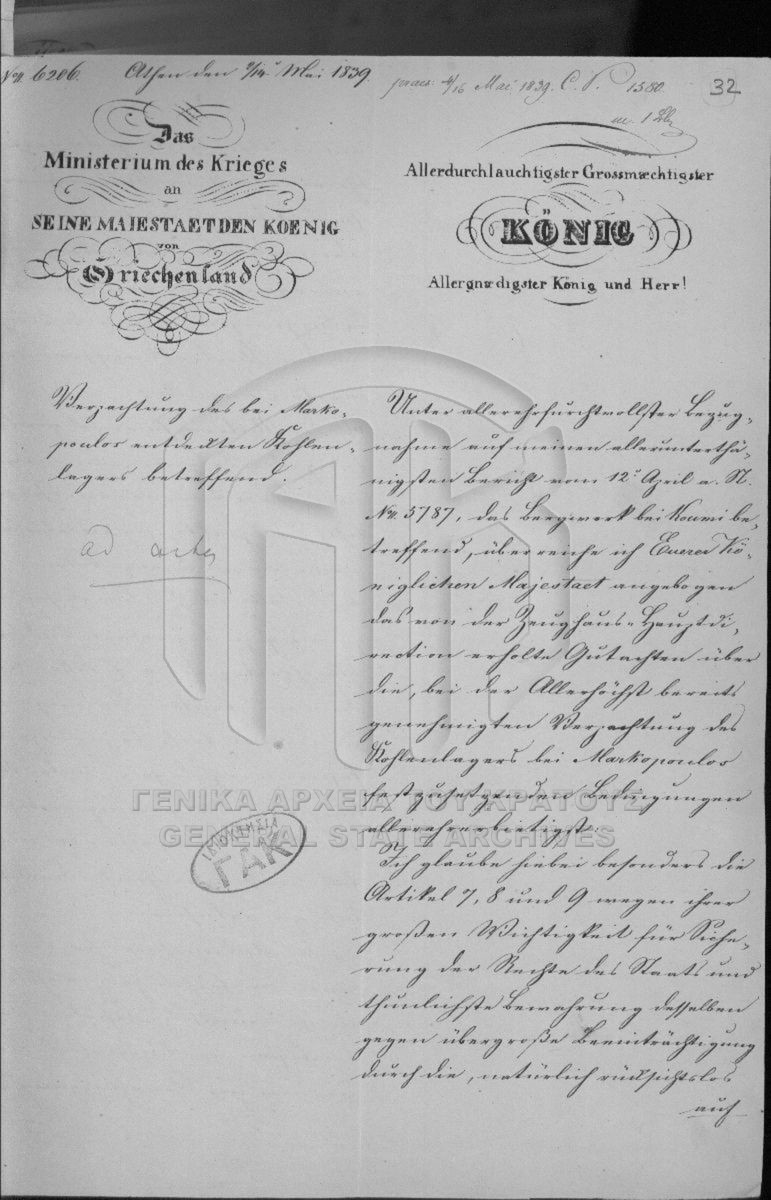 No. 6206. Athen den 2/14 Mai 1839.
praes. 4/16 Mai 1839. C. P. 1580.
32
Das
Ministerium des Krieges
an
SEINE MAIESTAET DEN KOENIG
von
Griechenland
Allerdurchlauchtigster Grossmæchtigster
KÖNIG
Allergnædigster König und Herr!
Verpachtung des bei Marko-
poulos entdekten Kohlen-
lagers betreffend.
ad acta
Unter allerehrfurchtvollster Bezug-
nahme auf meinen allerunterthä-
nigsten Bericht vom 12. April a. St.
No. 5787, das Bergwerk bei Koumi be-
treffend, überreiche ich Euerer Kö-
niglichen Majestaet angebogen
das von der Zeughaus-Hauptdi-
rection erholte Gutachten über
die, bei der Allerhöchst bereits
genehmigten Verpachtung des
Kohlenlagers bei Markopoulos
festzusetzenden Bedingungen
allerehrerbietigst.
Ich glaube hiebei besonders die
Artikel 7, 8 und 9 wegen ihrer
großen Wichtigkeit für Siche-
rung der Rechte des Staats und
thunlichste Bewahrung desselben
gegen übergroße Beeinträchtigung
durch die, natürlich rüksichtslos
auf
ΓΕΝΙΚΑ ΑΡΧΕΙΑ ΤΟΥ ΚΡΑΤΟΥΣ
GENERAL STATE ARCHIVES
ΓΑΚ